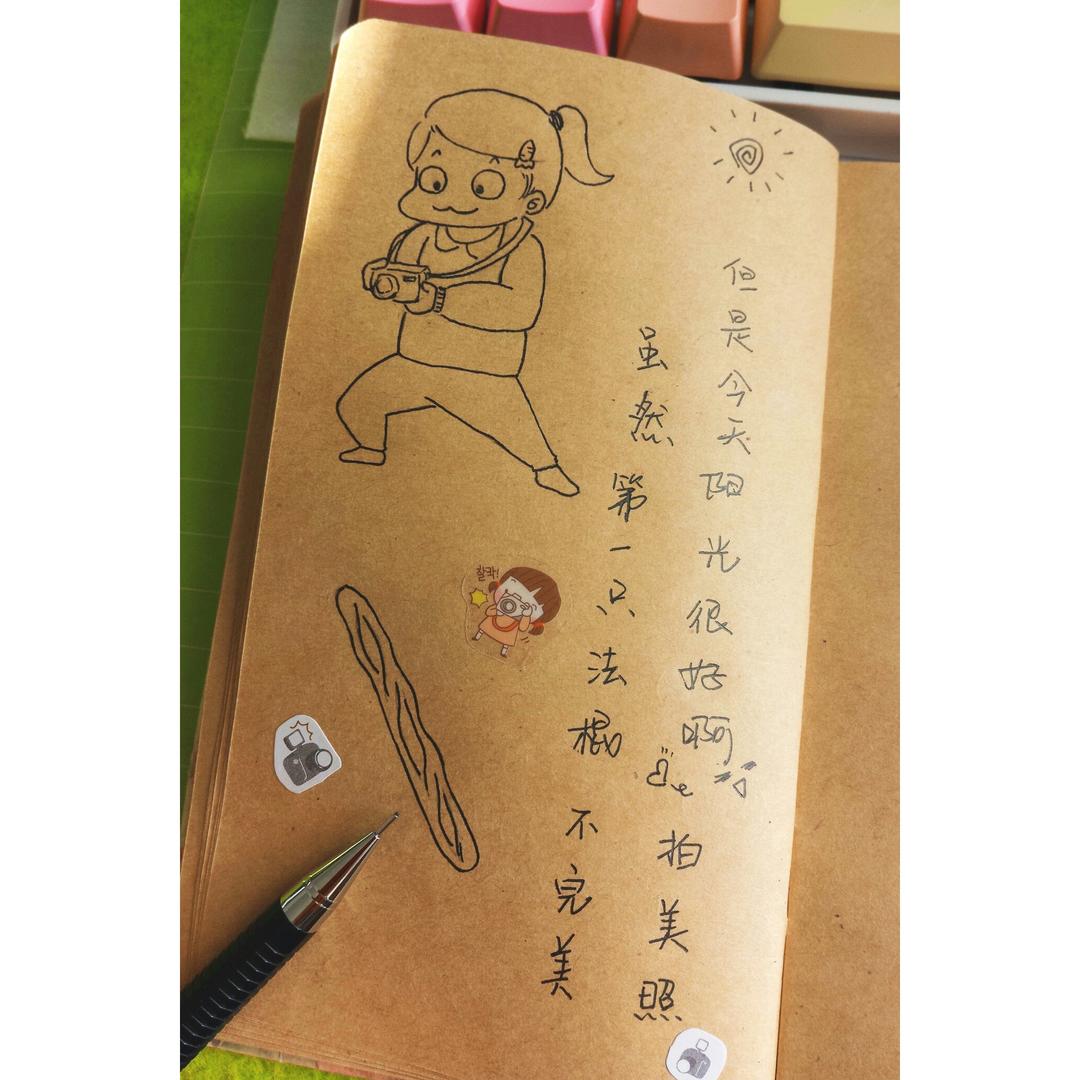 虽然第一只法棍不完美
但是今天阳光很好啊 拍美照
찰칵!